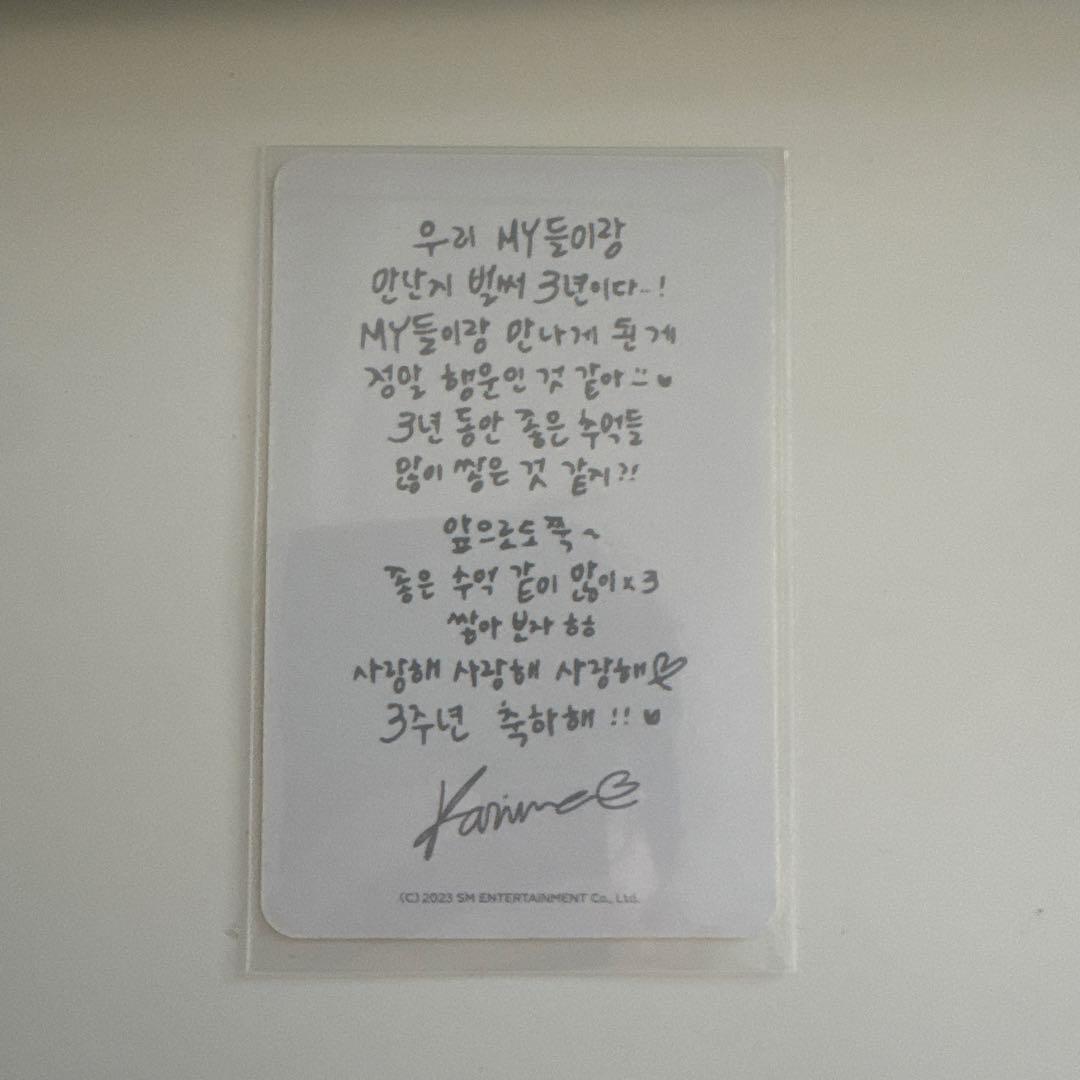 우리 MY들이랑
만난지 벌써 3년이다..!
MY들이랑 만나게 된 게
정말 행운인 것 같아 :: ♥
3년 동안 좋은 추억들
많이 쌓은 것 같지?!
앞으로도 쭉~
좋은 추억 같이 많이x3
쌓아 보자 ㅎㅎ
사랑해 사랑해 사랑해♡
3주년 축하해 !! ♥
Karina
(C) 2023 SM ENTERTAINMENT Co., Ltd.